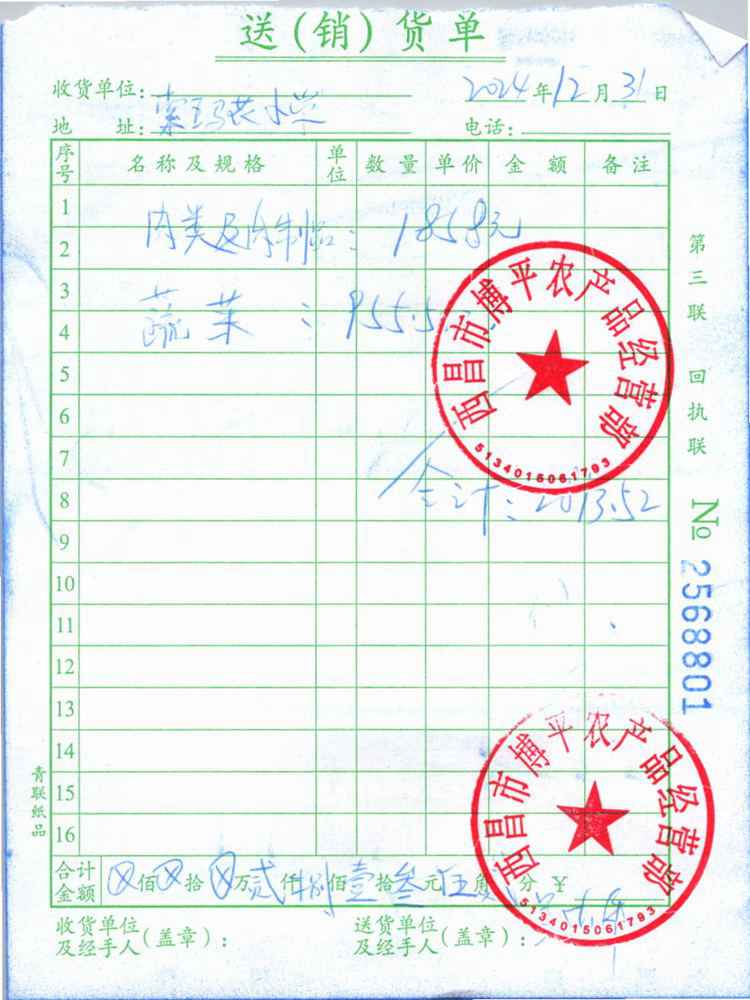 送(销)货单
收货单位: 2024年12月31日
地 址: 索玛花小学 电话:
序号 名称及规格 单位 数量 单价 金额 备注
1
肉类及肉制品: 1858元
2
3
蔬菜: 955.5
4
5
6
7
合计: 2813.52
8
9
10
11
12
13
14
15
16
合计金额 佰 拾 万贰仟捌佰壹拾叁元伍角 分 ¥
收货单位及经手人(盖章): 送货单位及经手人(盖章):
第三联 回执联
№ 2568801
青联纸品
西昌市博平农产品经营部
5134015061793
西昌市博平农产品经营部
5134015061793